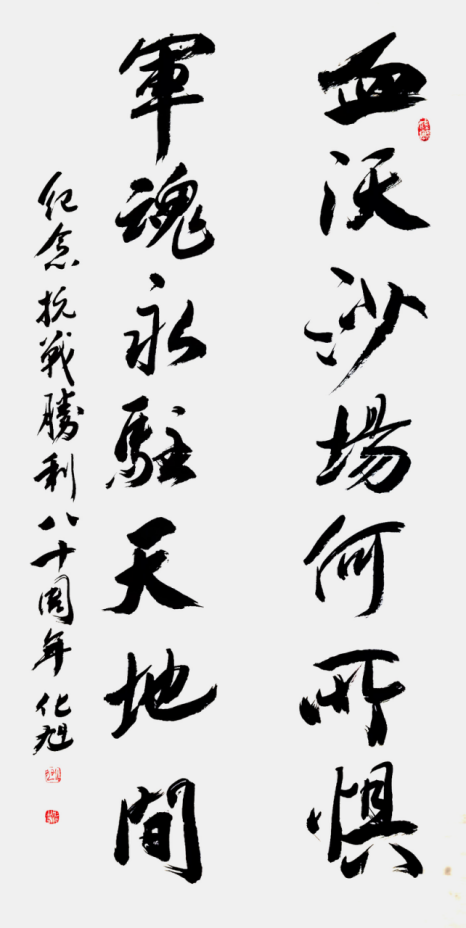 血沃沙場何所懼
軍魂永駐天地間
紀念抗戰勝利八十周年 化旭